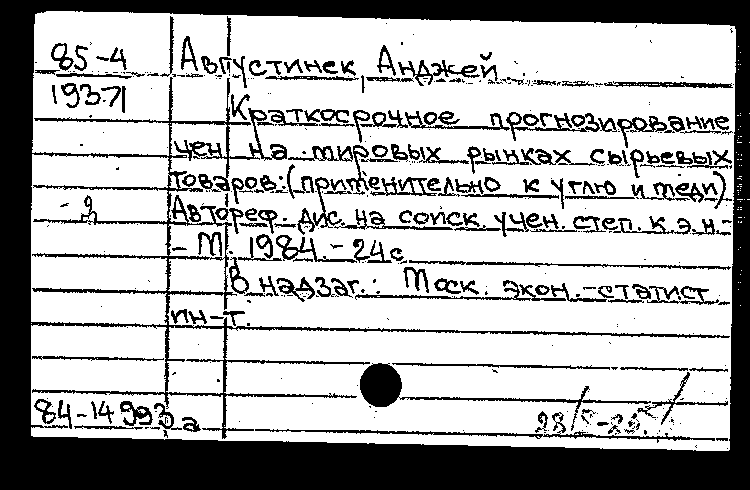 85-4 Августинек, Анджей.
19371
Краткосрочное прогнозирование
цен на мировых рынках сырьевых
товаров: (применительно к углю и меди)
Автореф. дис. на соиск. учен. степ. к.э.н.-
- М. 1984. - 24с
В надзаг.: Моск. экон.-статист.
ин-т.
84-14993а